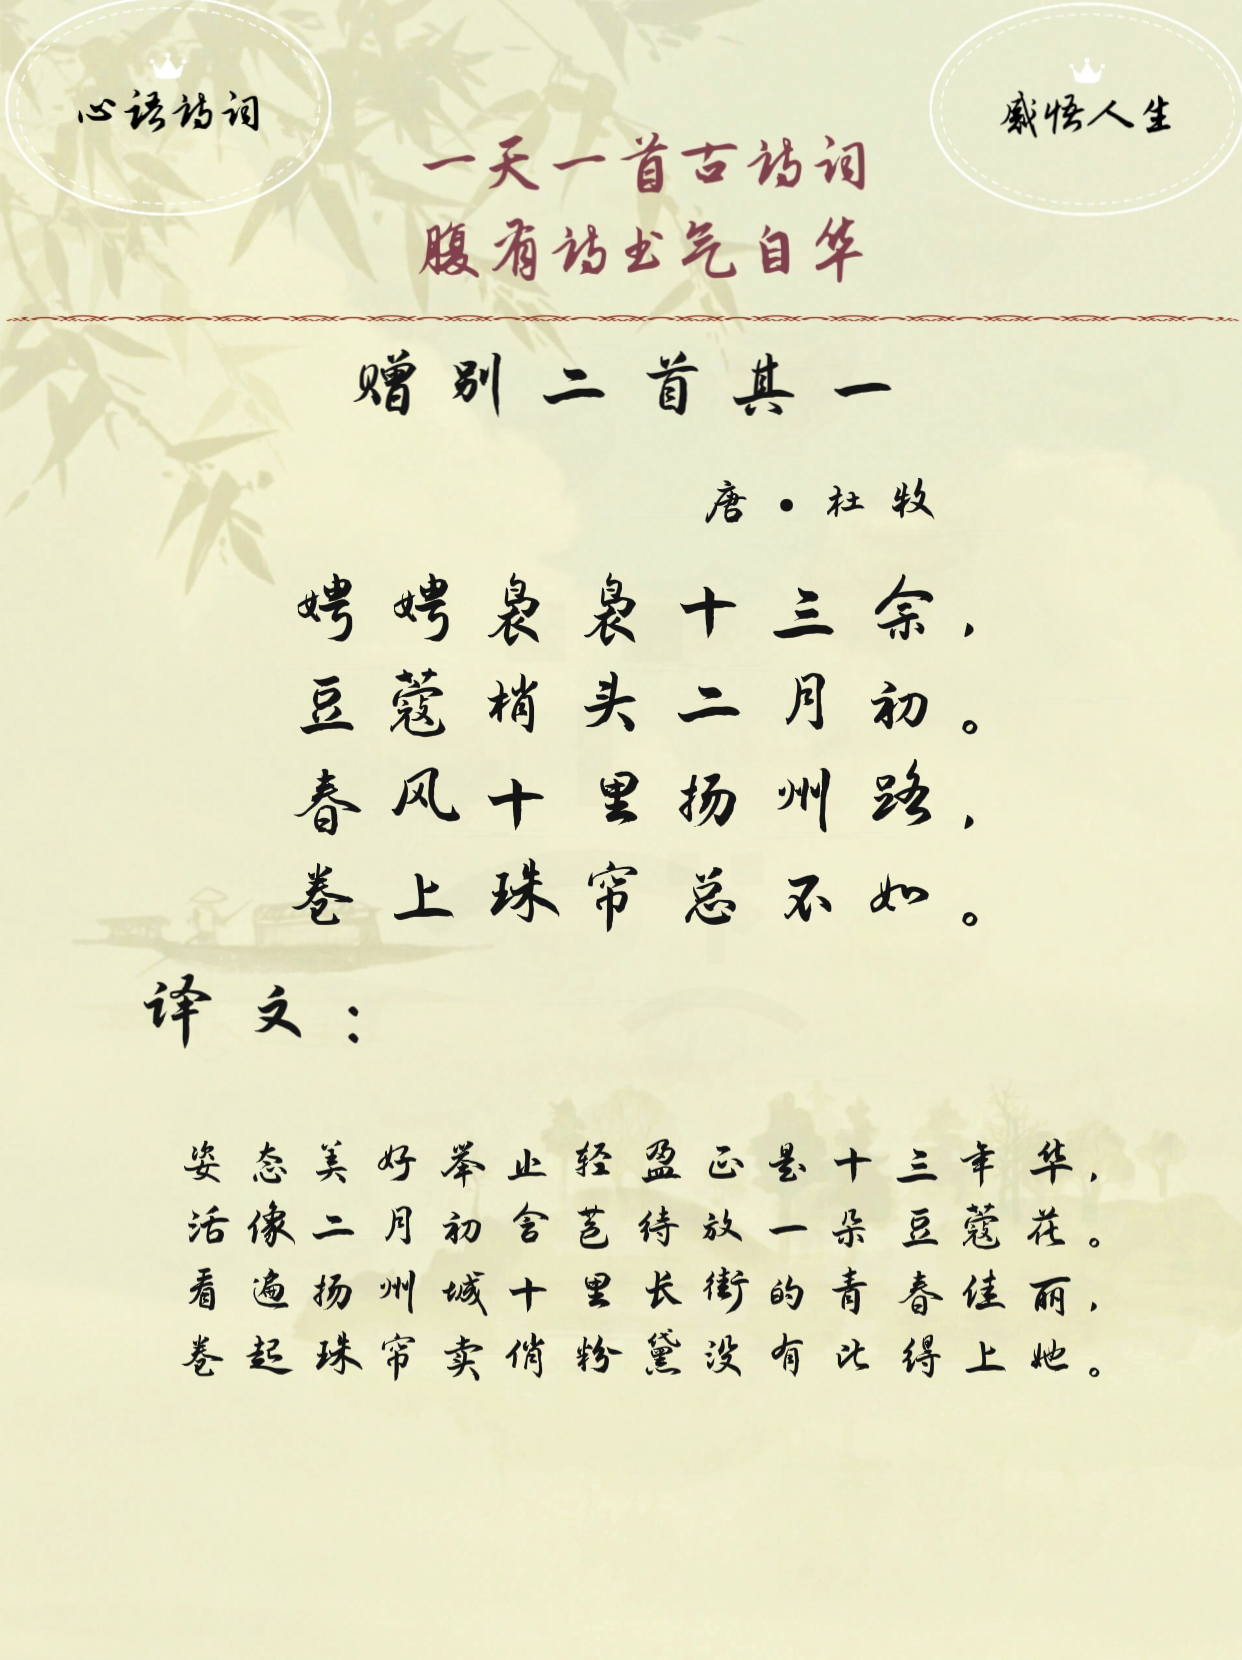 心语诗词
感悟人生
一天一首古诗词
腹有诗书气自华
赠别二首其一
唐·杜牧
娉娉袅袅十三余，
豆蔻梢头二月初。
春风十里扬州路，
卷上珠帘总不如。
译文：
姿态美好举止轻盈正是十三年华，
活像二月初含苞待放一朵豆蔻花。
看遍扬州城十里长街的青春佳丽，
卷起珠帘卖俏粉黛没有比得上她。